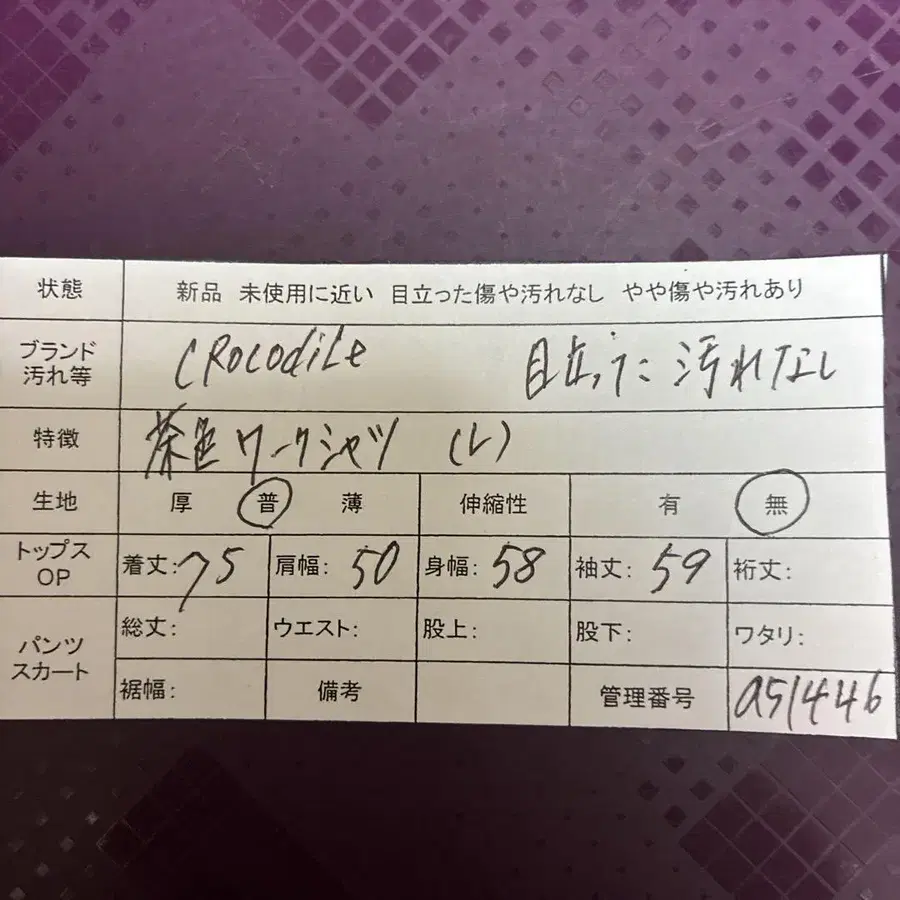 状態 新品 未使用に近い 目立った傷や汚れなし やや傷や汚れあり
ブランド
汚れ等 CRocodiLe 目立った汚れなし
特徴 茶色ワークシャツ (L)
生地 厚 普 薄 伸縮性 有 無
トップス
OP 着丈:75 肩幅:50 身幅:58 袖丈:59 裄丈:
パンツ
スカート
総丈: ウエスト: 股上: 股下: ワタリ:
裾幅: 備考 管理番号 a51446